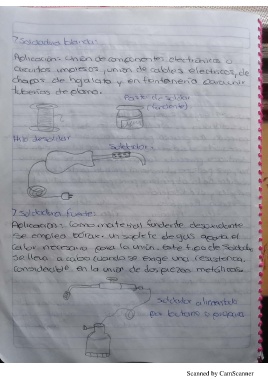 ? Soldadura blanda:
Aplicación: Unión de componentes electrónicos a
circuitos impresos, unión de cables eléctricos, de
chapas de hojalata y en fontanería para unir
tuberías de plomo.
Pasta de soldar
(fundente)
Hilo de soldar
Soldador
? Soldadura fuerte:
Aplicación: Como material fundente desoxidante
se emplea bórax. un soplete de gas aporta el
calor necesario para la unión. este tipo de Soldadura
se lleva a cabo cuando se exige una resistencia
considerable en la unión de dos piezas metálicas.
soldador alimentado
por butano o propano
Scanned by CamScanner